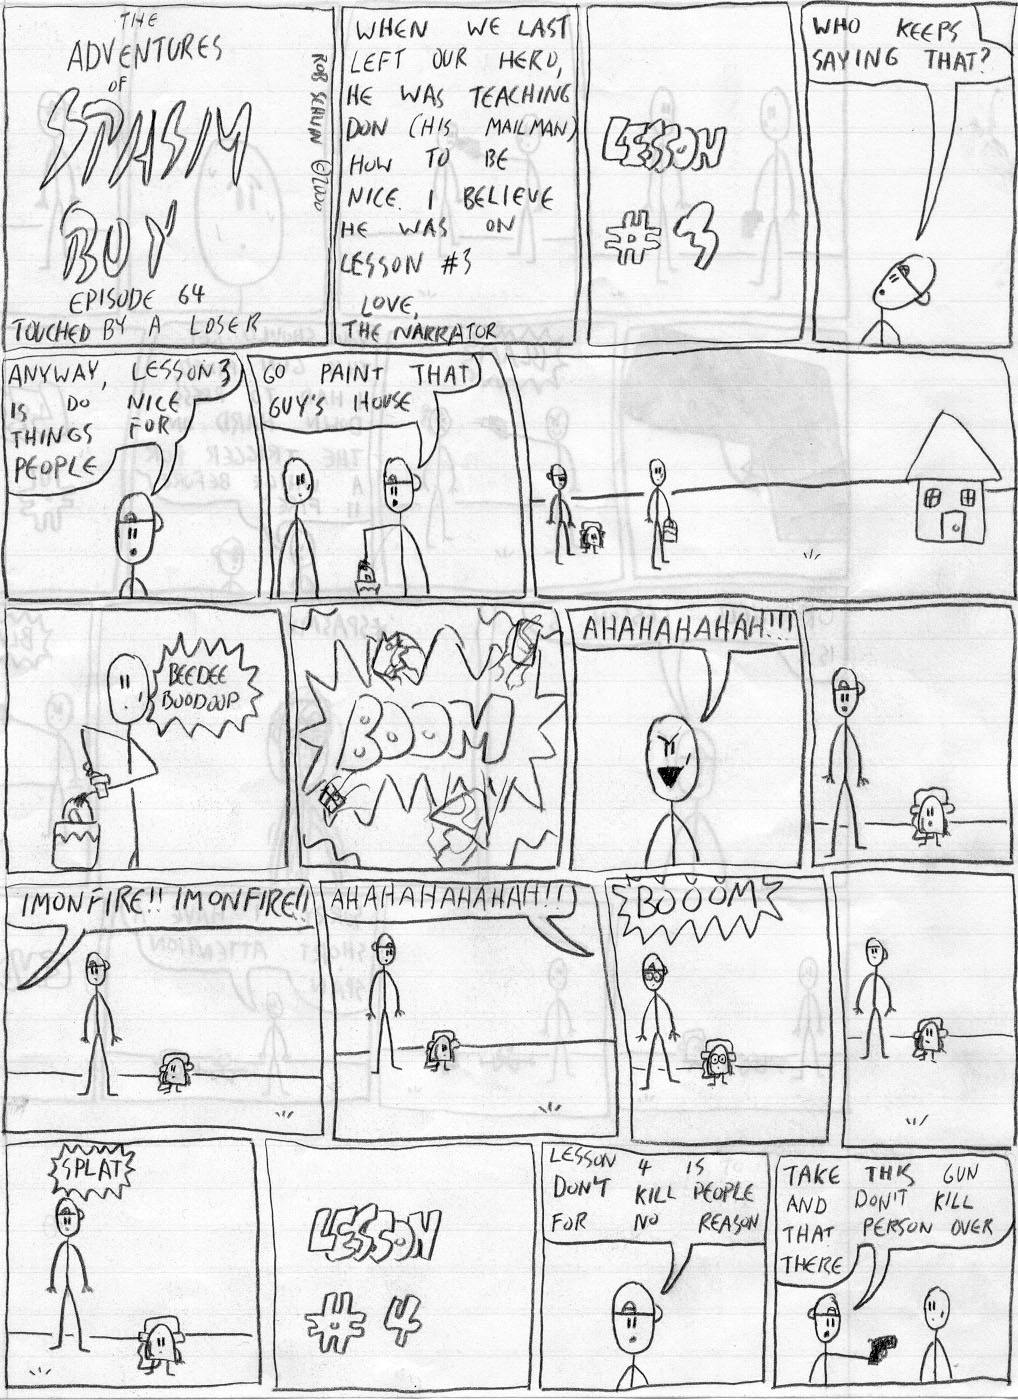 THE
ADVENTURES
OF
SPASM
BOY
EPISODE 64
TOUCHED BY A LOSER
©2000
WHEN WE LAST
LEFT OUR HERO,
HE WAS TEACHING
DON (HIS MAILMAN)
HOW TO BE
NICE. I BELIEVE
HE WAS ON
LESSON #3
LOVE,
THE NARRATOR
LESSON
#3
WHO KEEPS
SAYING THAT?
ANYWAY, LESSON 3
IS DO NICE
THINGS FOR
PEOPLE
GO PAINT THAT
GUY'S HOUSE
BEEDEE
BOODOOP
BOOM
AHAHAHAHAH!!!
IMONFIRE!! IMONFIRE!!
AHAHAHAHAHAH!!!
BOOOM
SPLAT
LESSON
#4
LESSON 4 IS
DON'T KILL PEOPLE
FOR NO REASON
TAKE THIS GUN
AND DON'T KILL
THAT PERSON OVER
THERE